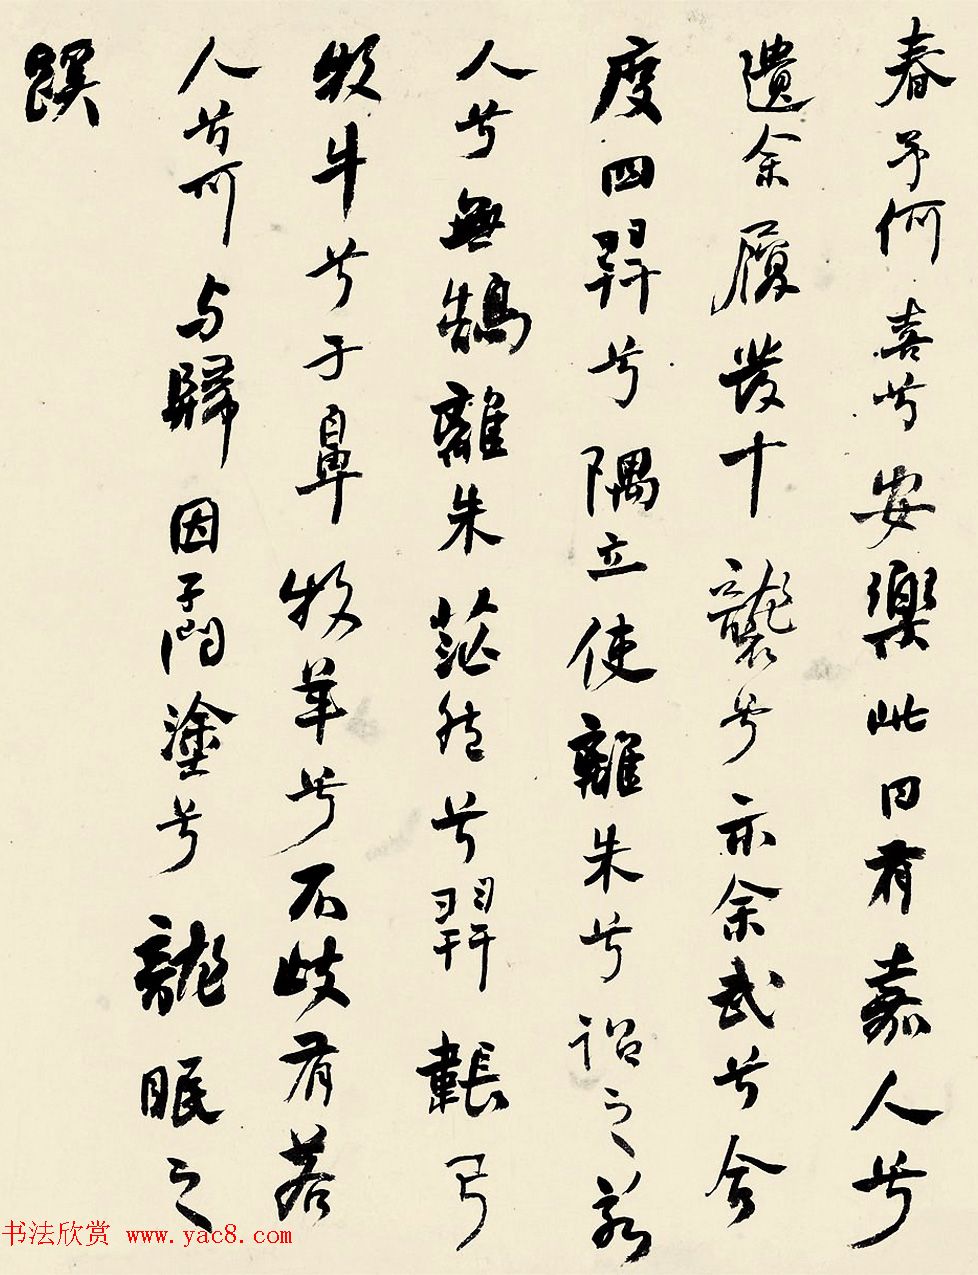 春予何喜兮安樂此日有嘉人兮
遺余履發十襲兮亦余武兮舍
度四羿兮隅立使離朱兮詔之若
人兮無鵠離朱茫然兮羿韔弓
牧牛兮于鼻牧羊兮不歧有若
人兮可与歸因予問塗兮龍眠之
蹊
书法欣赏 www.yac8.com